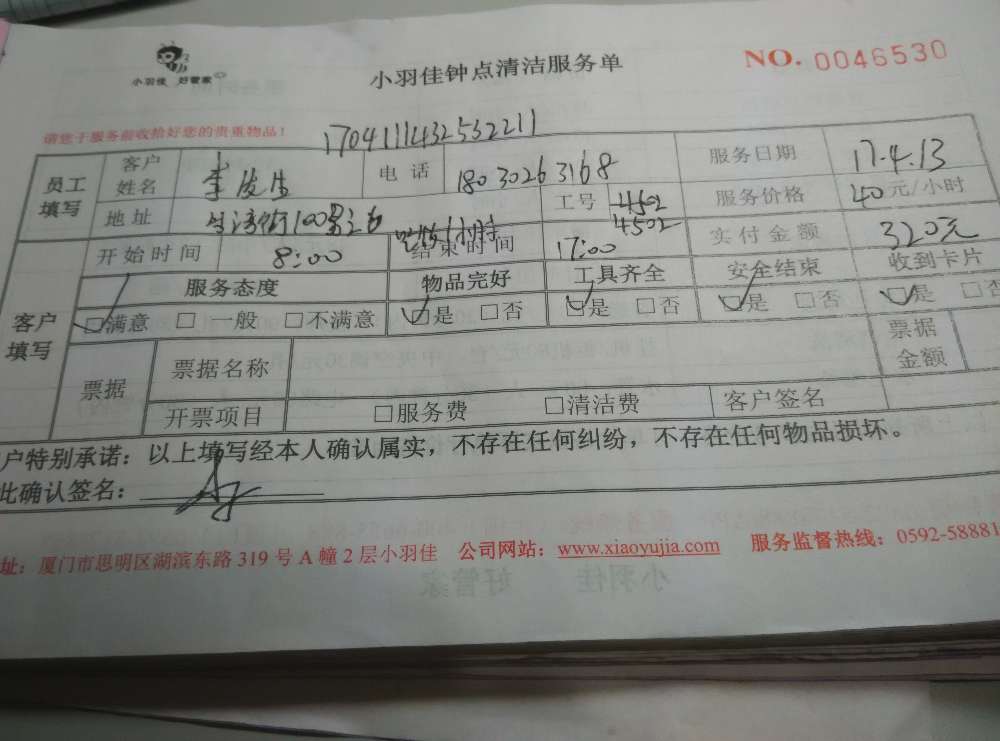 小羽佳 好管家
小羽佳钟点清洁服务单
NO. 0046530
请您于服务前收拾好您的贵重物品!
1704111432532211
员工填写 客户姓名 李 电话 18030263168 服务日期 17.4.13
地址 100号 工号 4502 4502 服务价格 40元/小时
客户填写 开始时间 8:00 小时 结束时间 17:00 实付金额 320元
服务态度 物品完好 工具齐全 安全结束 收到卡片
□满意 □一般 □不满意 □是 □否 □是 □否 □是 □否 □是 □否
票据 票据名称 票据金额
开票项目 □服务费 □清洁费 客户签名
户特别承诺:以上填写经本人确认属实,不存在任何纠纷,不存在任何物品损坏。
此确认签名:
址:厦门市思明区湖滨东路 319 号 A 幢 2 层小羽佳 公司网站:www.xiaoyujia.com 服务监督热线:0592-58881